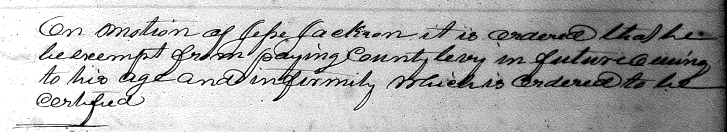 On motion of Jesse Jackson it is ordered that he
be exempt from paying County levy in future owing
to his age and infirmity which is ordered to be
certified